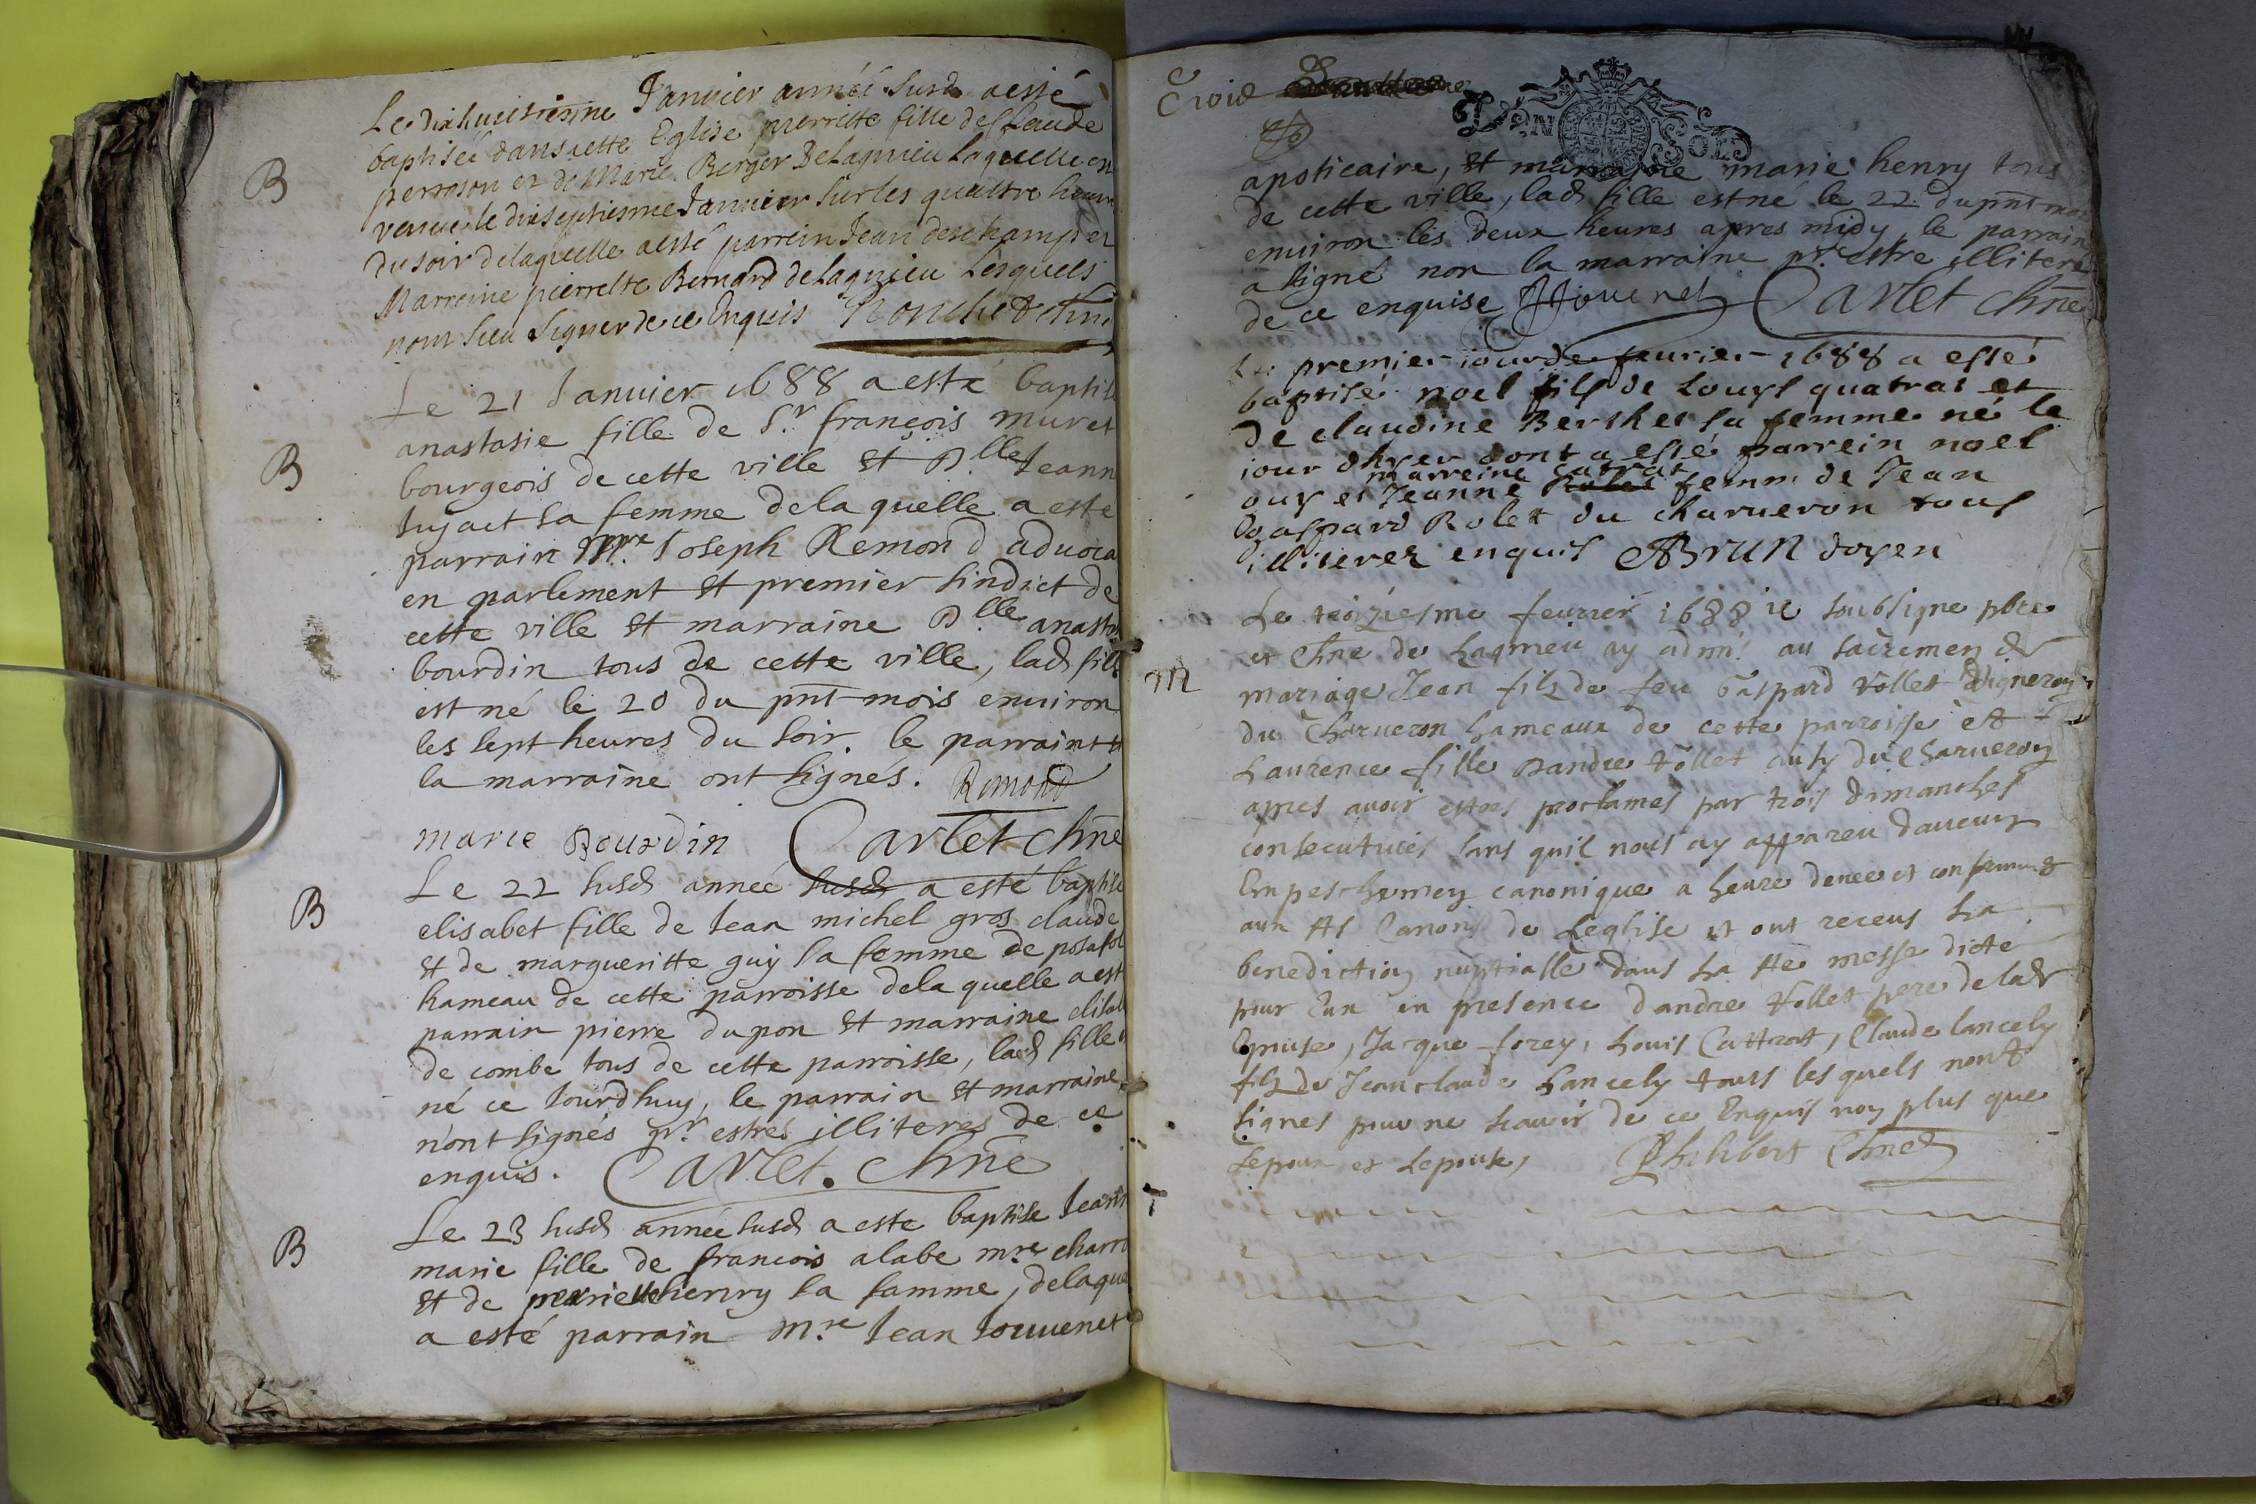 Le dixhuictiesme Janvier année susd a esté
B
baptiseé dans cette Eglise pierrette fille de Claude
perroson et de Marie Berger De Lagnieu laquelle est
venue le dixseptiesme Janvier sur les quattre heures
du soir de laquelle a esté parrein Jean deschamp et
Marreine pierrette Bernard de Lagnieu Lesquels
nont sceu signer de ce Enquis Ronchet chne
Le 21 Janvier 1688 a esté baptisé
B
anastasie fille de Sr françois muret
bourgeois de cette ville et Dlle Jeann
sa femme de la quelle a esté
parrain Mre Joseph Remond advoca
en parlement et premier sindict de
cette ville et marraine Dlle anasta
bourdin tous de cette ville, lad fille
est né le 20 du pnt mois environ
les sept heures du soir. le parraint et
la marraine ont signés. Remond
marie Bourdin Carlet chne
Le 22 susd année susd a esté baptisé
B
elisabet fille de Jean michel gros claude
et de margueritte guy sa femme de posafol
hameau de cette parroisse de la quelle a est
parrain pierre dupon et marraine elisab
de combe tous de cette parroisse, lad fille e
né ce Jourdhuy, le parrain et marraine
n'ont signés pr estres illiteres de ce
enquis. Carlet. chne
Le 23 susd année susd a este baptisé Jeann
B
marie fille de francois alabe mre charro
et de pierriette henry sa famme, de laque
a esté parrain mre Jean Jouvenet
Troid
DEN SOL
apoticaire, et marraine marie henry tous
de cette ville, lad fille est né le 22 du pnt moi
environ les deux heures apres midy, le parrain
a signé non la marraine pr estre illiteré
de ce enquise JJouvenet Carlet chne
Le premier jour de feurier 1688 a esté
baptisé noel fils de Louys quatrat et
de claudine Berthet sa femme né le
jour dhyer dont a esté parrein noel
marreine Catrat
ouy et Jeanne Rolet femme de Jean
Gaspard Rolet du charueron tous
illiterez enquis ABRUN doyen
Le treiziesme feurier 1688 je soubsigne pbre
et Chne de Lagnieu ay admi au sacremen de
M
mariage Jean filz de feu Gaspard Vollet Vigneron
du Charueron hameaux de cette parroisse et
Laurence fille dandre Vollet aussy du Charueron
apres avoir estres proclames par trois dimanches
consecutives sans quil nous ay appareu daucun
Empeschemen canonique a heure deuee et conformes
aux sts Canons de Leglise et ont receus La
benediction nuptialle dans La ste messe dicte
pour Eux en presence dandre Vollet pere de lad
Epouse, Jacque forey, Louis Cattrat, Claude Lancely
filz de Jean claude Lancely tous les quels nont
signes pour ne scavoir de ce Enquis non plus que
Lepoux et Lepouse, Philibert Chne